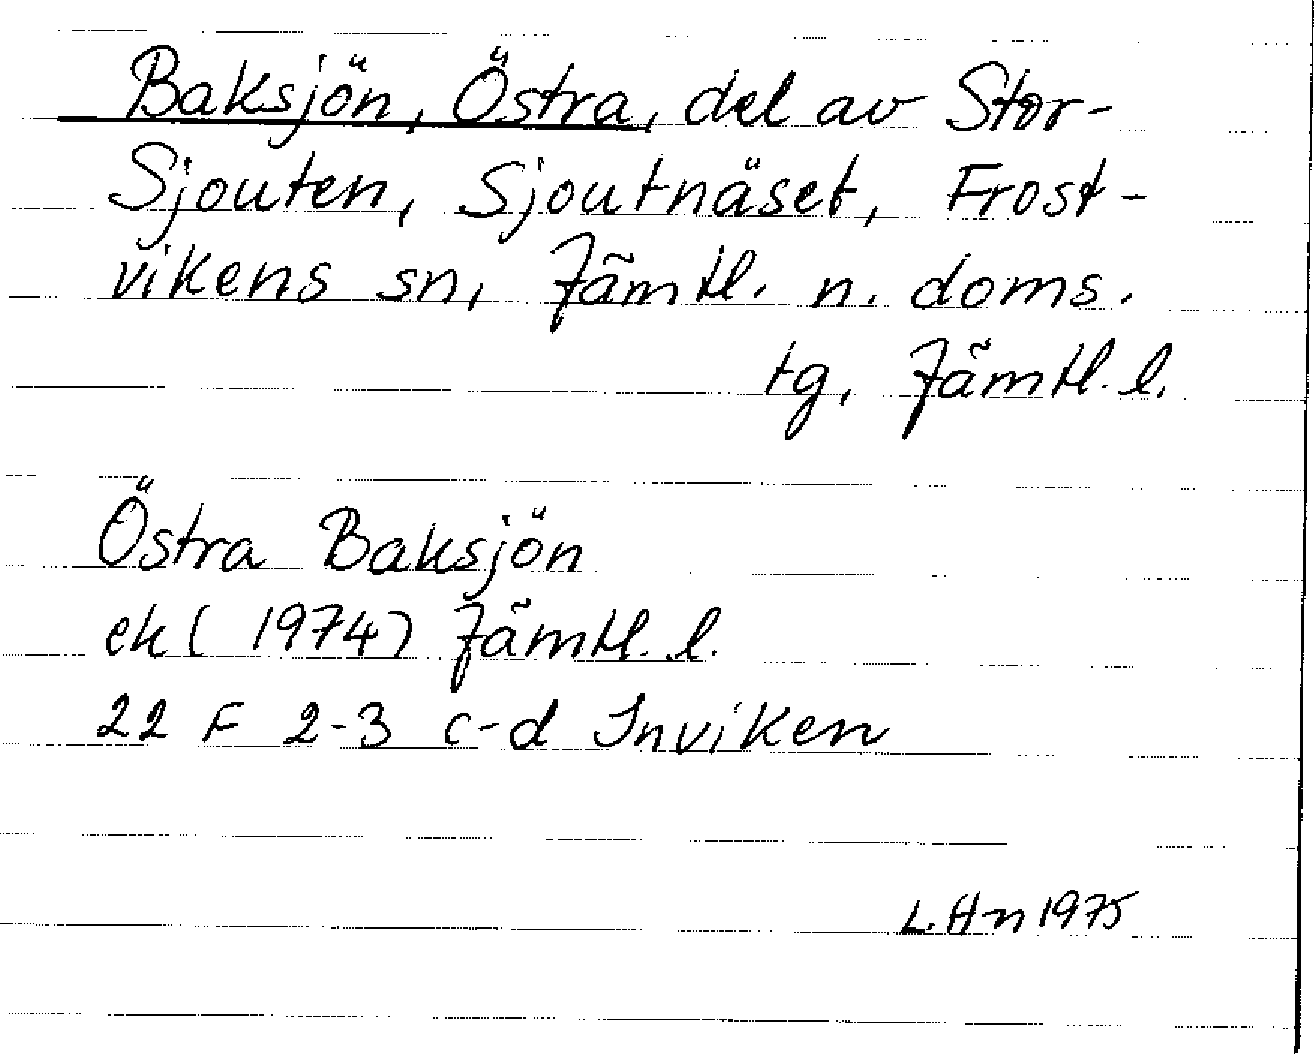 Baksjön, Östra, del av Stor-
Sjouten, Sjoutnäset, Frost-
vikens sn, Jämtl. n. doms.
tg, Jämtl. l.
Östra Baksjön
ek (1974) Jämtl. l.
22 F 2-3 c-d Inviken
L. H-n 1975